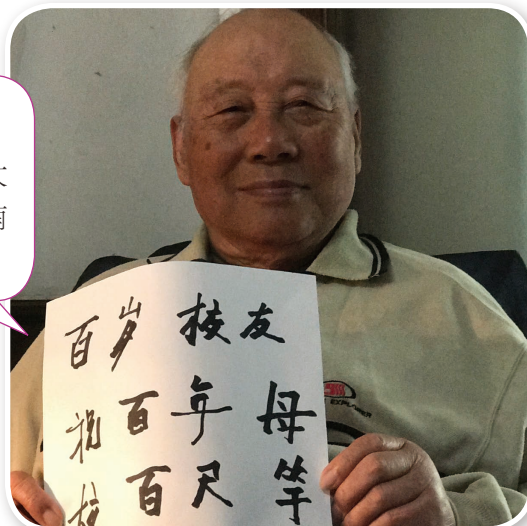 百岁校友
祝百年母
校百尺竿